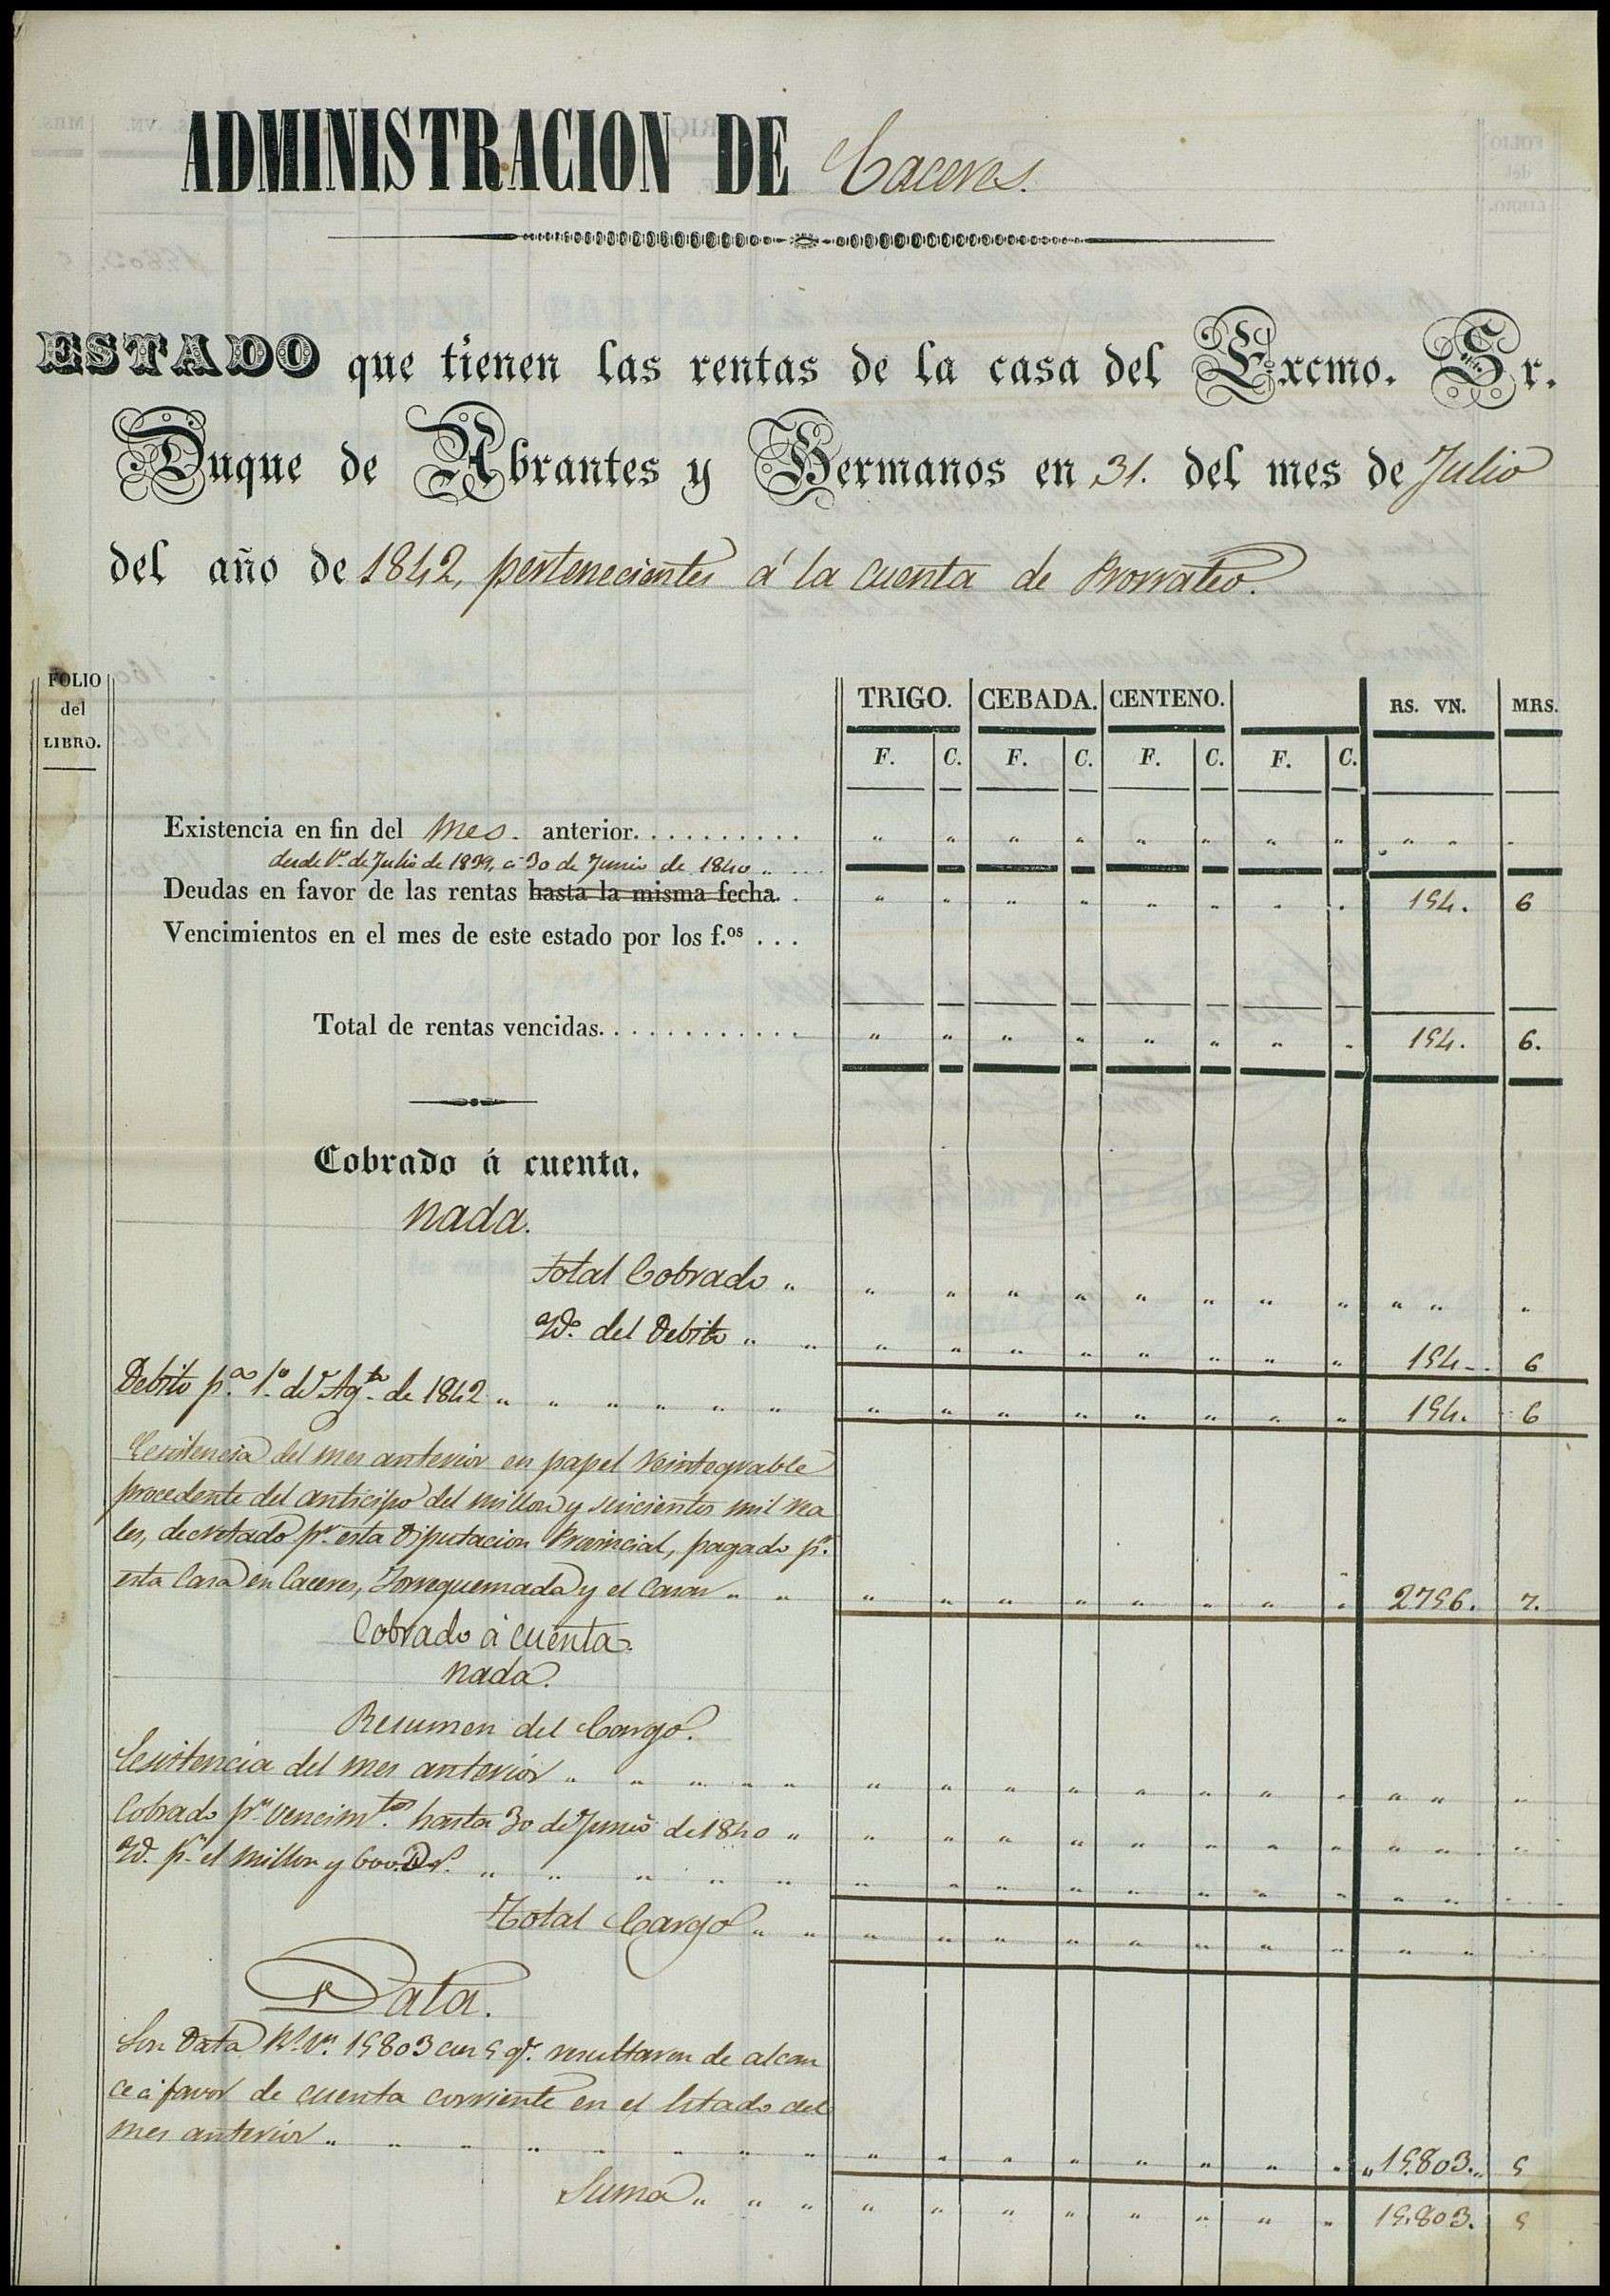 ADMINISTRACION DE Caceres.
ESTADO que tienen las rentas de la casa del Excmo. Sr.
Duque de Abrantes y Hermanos en 31. del mes de Julio
del año de 1842, pertenecientes á la cuenta de Prorrateo.
FOLIO del LIBRO.
TRIGO. CEBADA. CENTENO. RS. VN. MRS.
F. C. F. C. F. C. F. C.
Existencia en fin del mes. anterior. . . . . . . . . .
desde 1º de Julio de 1839, á 30 de Junio de 1840 „
Deudas en favor de las rentas hasta la misma fecha. . 154. 6
Vencimientos en el mes de este estado por los f.os . . .
Total de rentas vencidas. . . . . . . . . . . . 154. 6.
Cobrado á cuenta.
nada.
total Cobrado „
Yd. del Debito „ „ 154.. 6
Debito p.a 1.º de Ag.to de 1842 „ „ „ „ „ „ 154. 6
Ecsistencia del mes anterior en papel reintegrable
procedente del anticipo del millon y seiscientos mil rea
les, decretado p.r esta Diputacion Provincial, pagado p.r
esta Casa en Caceres, Torrequemada y el Casar „ „ 2756. 7.
Cobrado á cuenta.
nada.
Resumen del Cargo.
Ecsistencia del mes anterior „ „ „ „ „
Cobrado p.r vencim.tos hasta 30 de Junio de 1840 „
Yd. p.r el millon y 600.D r.s „ „ „ „ „
Total Cargo „ „
Data.
Son Data R.s V.n 15803 con 5 q.e resultaron de alcan
ce á favor de cuenta corriente en el Estado del
mes anterior „ „ „ „ „ „ „ „ 15.803.. 5
Suma „ „ „ 15.803. 5